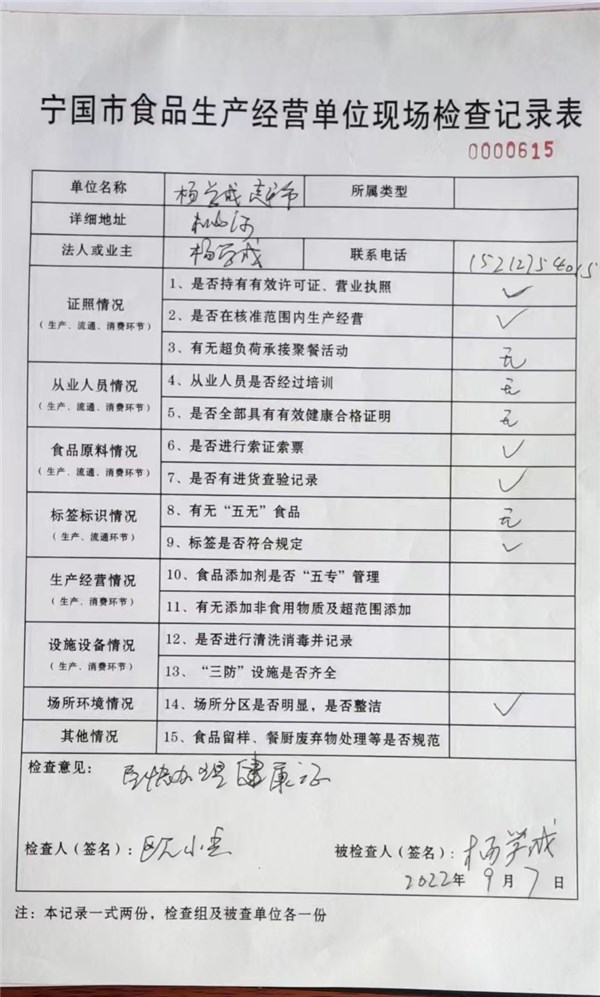 宁国市食品生产经营单位现场检查记录表
0000615
单位名称 杨学成 所属类型
详细地址
法人或业主 杨学成 联系电话 15212754015
证照情况
(生产、流通、消费环节)
1、是否持有有效许可证、营业执照 ✓
2、是否在核准范围内生产经营 ✓
3、有无超负荷承接聚餐活动 无
从业人员情况
(生产、流通、消费环节)
4、从业人员是否经过培训 无
5、是否全部具有有效健康合格证明 无
食品原料情况
(生产、流通、消费环节)
6、是否进行索证索票 ✓
7、是否有进货查验记录 ✓
标签标识情况
(生产、流通环节)
8、有无“五无”食品 无
9、标签是否符合规定 ✓
生产经营情况
(生产、消费环节)
10、食品添加剂是否“五专”管理
11、有无添加非食用物质及超范围添加
设施设备情况
(生产、消费环节)
12、是否进行清洗消毒并记录
13、“三防”设施是否齐全
场所环境情况 14、场所分区是否明显，是否整洁 ✓
其他情况 15、食品留样、餐厨废弃物处理等是否规范
检查意见：
尽快办理健康证
检查人(签名)： 被检查人(签名)： 杨学成
2022年 9月 7日
注：本记录一式两份，检查组及被查单位各一份